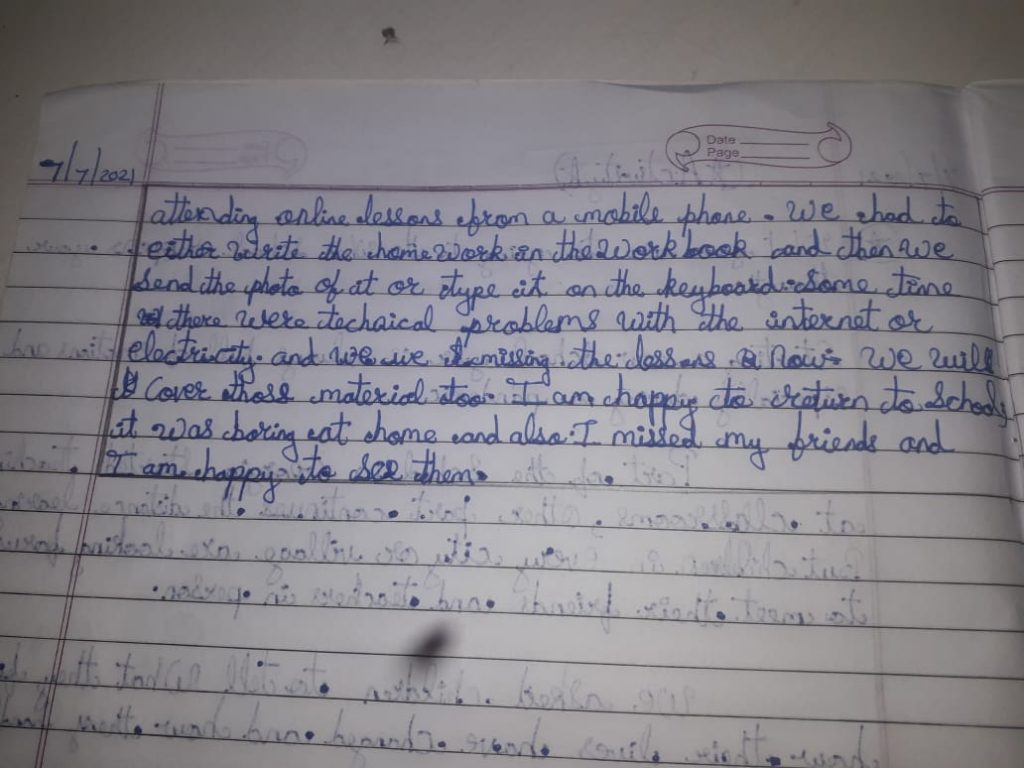 Date
Page
7/7/2021
attending online lessons from a mobile phone. We had to
either write the home work in the work book and then we
send the photo of it or type it on the keyboard. Some time
there were techaical problems with the internet or
electricity. and we are missing the lessons Now we will
Cover those material too. I am happy to return to School,
it was boring at home and also I missed my friends and
I am happy to see them.